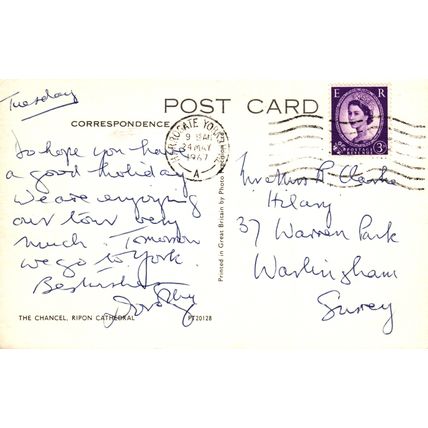 Tuesday
POST CARD
CORRESPONDENCE
HARROGATE YORKS
9 AM
24 MAY
1967
A
E R
3D
Do hope you have
a good holiday
We are enjoying
our tour very
much. Tomorrow
we go to York.
Best wishes
Dorothy
Printed in Great Britain by Photo
R Clarke
Hilary
37 Warren Park
Warlingham
Surrey
THE CHANCEL, RIPON CATHEDRAL
PT20128